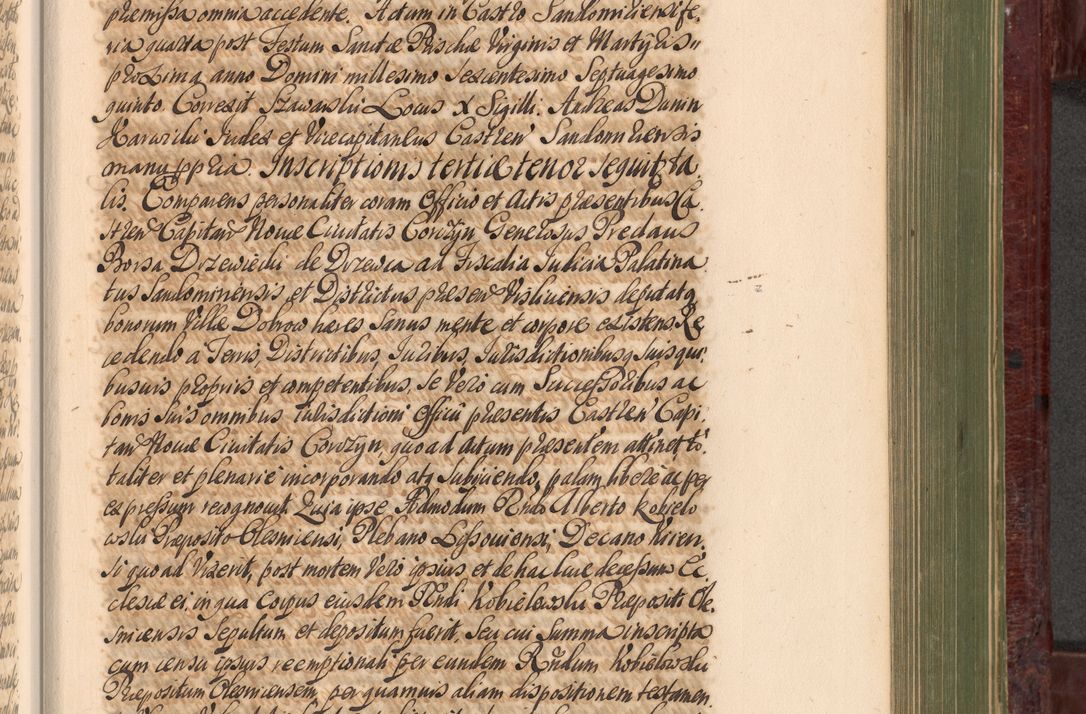 premissa omnia accedente. Actum in Castro Sandomiriensi fe,
ria quarta post Festum Sanctæ Priscæ Virginis et Martyris
proxima anno Domini millesimo sexcentesimo Septuagesimo
quinto. Correxit Szawarski Locus Sigilli. Andreas Dunin
Karwicki Judex et Vicecapitaneus Castren Sandomiriensis
manu ppria. Inscriptionis tertiæ tenor sequitur ta,
lis. Comparens personaliter coram Officio et Actis præsentibus Ca,
stren Capitan Novæ Civitatis Corczyn Generosus Predaus
Borsa Drzewiecki de Drzewica ad Fiscalia Judicia Palatina
tus Sandominensis et Districtus præsen Visliciensis deputatq
bonorum Villæ Dobrow hæres Sanus mente et corpore existens Re,
cedendo a Terris, Districtibus, Juribus, Jurisdictionibusq suis qui,
busvis propriis et competentibus, Se vero cum Successoribus ac
bonis suis omnibus iurisdictioni Officii præsentis Castren Capi,
tan Novæ Civitatis Corczyn, quo ad Actum præsentem attinet to,
taliter et plenarie incorporando atq subiiciendo, palam libere ac per
expressum recognovit. Quia ipse Admodum Rndo Alberto Kobielo
wski Præposito Olesnicensi, Plebano Lissoviensi, Decano Kiren,
si quo ad vixerit, post mortem vero ipsius et de hac luce decessum Ec,
clesiæ ei, in qua Corpus eiusdem Rndi Kobielowski Præpositi Ole,
snicensis Sepultum et depositum fuerit, Seu cui Summa inscripta
cum censu ipsius reemptionali per eundem Rndum Kobielowski
Præpositum Olesnicensem, per quamvis aliam dispositionem testamen